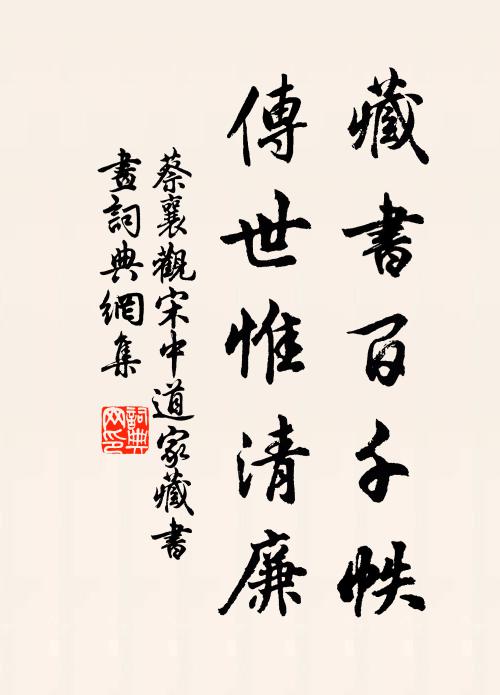 藏書百千帙
傳世惟清廉
蔡襄觀宋中道家藏書
畫詞典網集
詞典网印